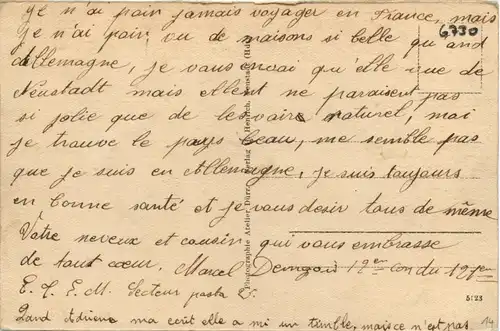 je n'ai pain jamais voyager en France, mais
je n'ai pain vu de maisons si belle qu and
allemagne, je vous envoi qu'elle vue de
Neustadt mais ellent ne paraisent pas
si jolie que de les voire naturel, moi
je trouve le pays beau, me semble pas
que je suis en Allemagne, je suis toujours
en bonne santé et je vous desir tous de même
Votre neveux et cousin qui vous embrasse
de tout cœur. Marcel 12em con du 127em
E. C. E. M. Secteur posta
Quand a ma ecrit elle a mi un timbre, mais ce n'est pas
6730
Photographie Atelier Verlag Henrich, Neustadt (Hdt
5123